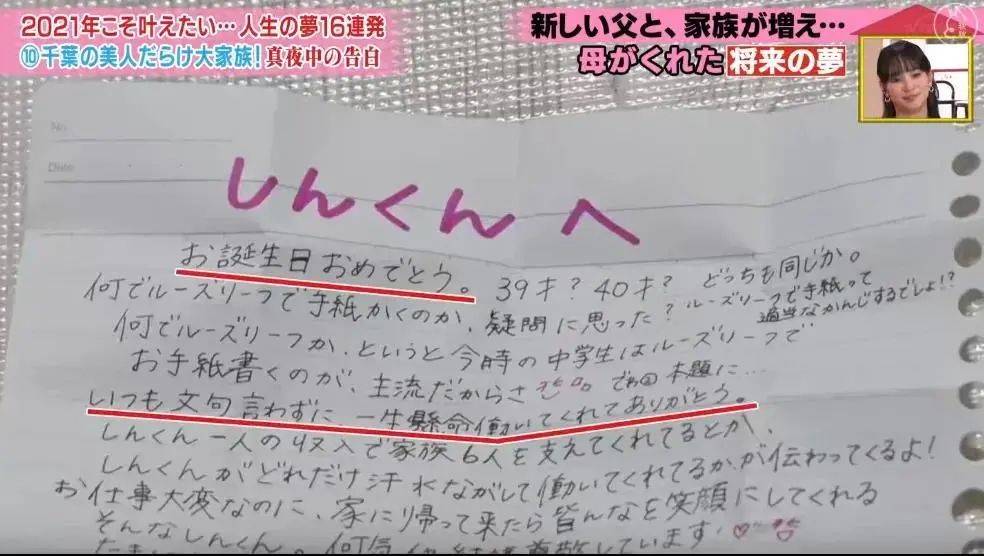 2021年こそ叶えたい…人生の夢16連発
⑩千葉の美人だらけ大家族!真夜中の告白
新しい父と、家族が増え…
母がくれた将来の夢
No
Date
しんくんへ
お誕生日おめでとう。39才?40才?どっちも同じか。
何でルーズリーフで手紙かくのか、疑問に思った?ルーズリーフで手紙って
適当なかんじするでしょ!?
何でルーズリーフか、というと今時の中学生はルーズリーフで
お手紙書くのが、主流だからさ でわ 本題に…
いつも文句言わずに、一生懸命働いてくれてありがとう。
しんくん一人の収入で家族6人を支えてくれてるとか、
しんくんがどれだけ汗水ながして働いてくれてるか、が伝わってくるよ!
お仕事大変なのに、家に帰って来たら皆んなを笑顔にしてくれる
そんなしんくん。何気 結構尊敬しています